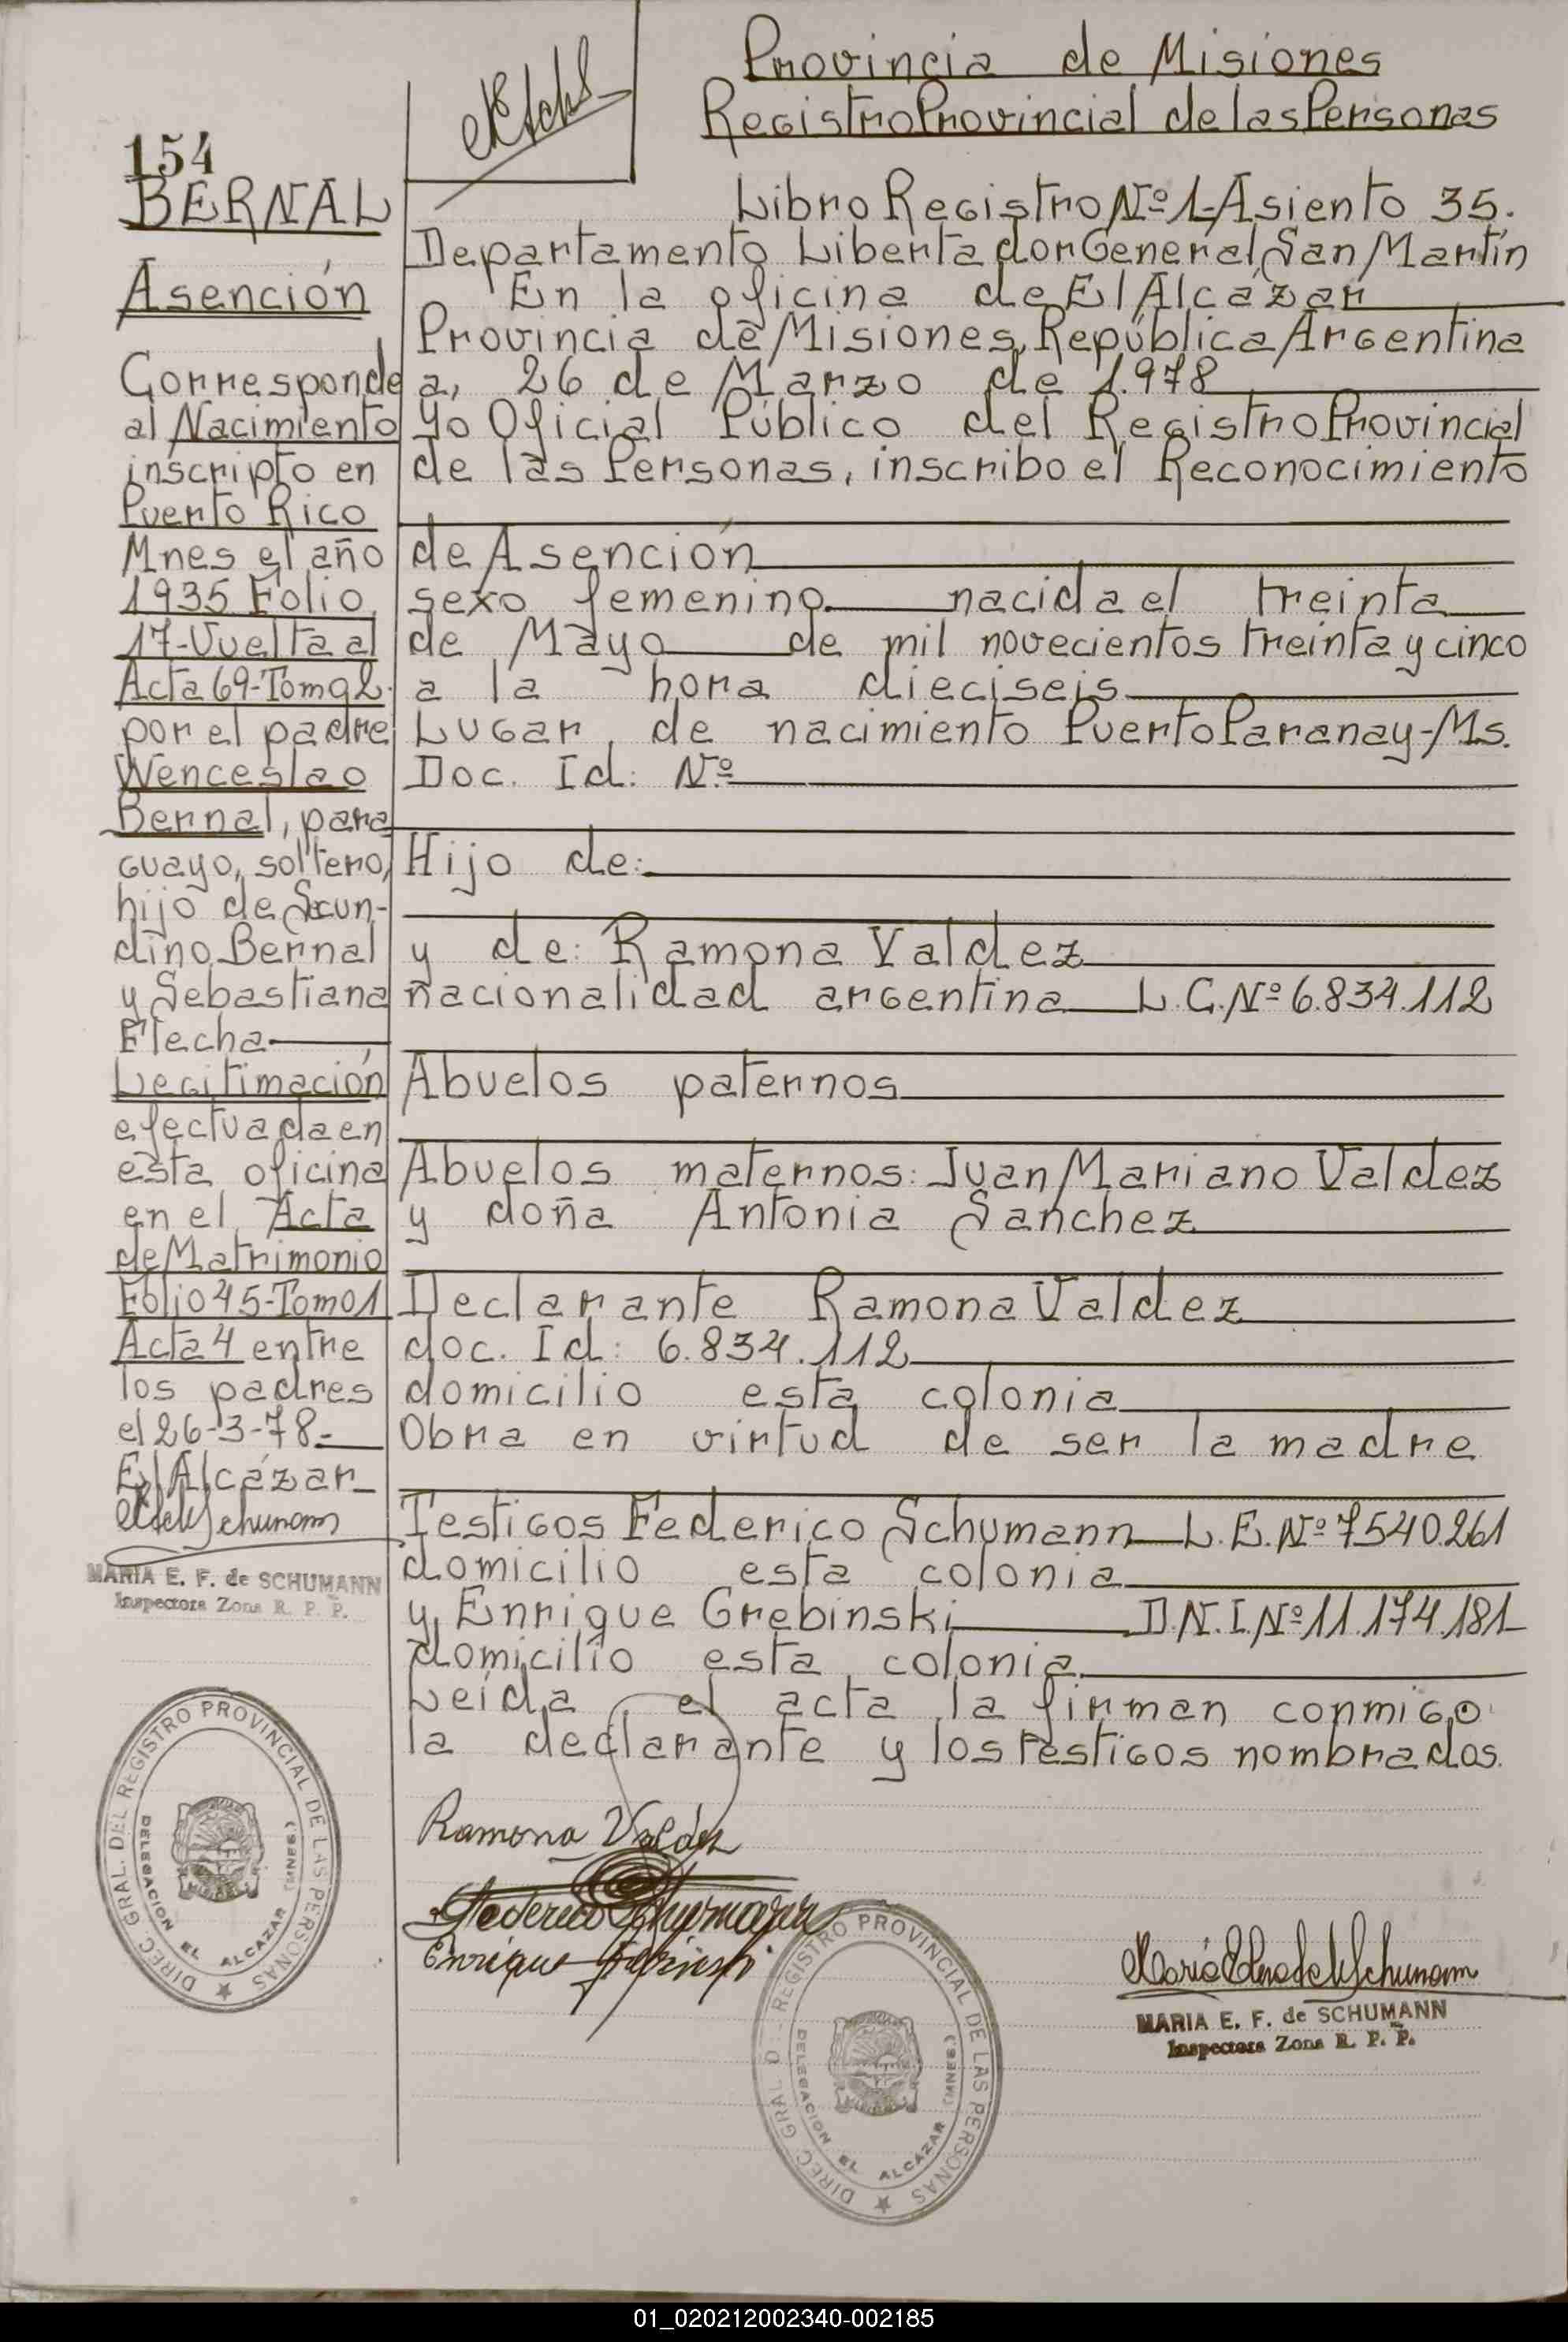 Provincia de Misiones
Registro Provincial de las Personas
154
BERNAL
Asención
Corresponde
al Nacimiento
inscripto en
Puerto Rico
Mnes el año
1935 Folio
17-Vuelta al
Acta 69-Tomo 2.
por el padre
Wenceslao
Bernal, para
guayo, soltero,
hijo de Secun-
dino Bernal
y Sebastiana
Flecha
Legitimación
efectuada en
esta oficina
en el Acta
de Matrimonio
Folio 45-Tomo 1
Acta 4 entre
los padres
el 26-3-78-
El Alcázar
MARIA E. F. de SCHUMANN
Inspectora Zona R. P. P.
DIREC. GRAL. DEL REGISTRO PROVINCIAL DE LAS PERSONAS
DELEGACION EL ALCAZAR (MNES.)
Libro Registro Nº 1-Asiento 35.
Departamento Libertador General San Martín
En la oficina de El Alcázar
Provincia de Misiones, República Argentina
a, 26 de Marzo de 1.978
yo Oficial Público del Registro Provincial
de las Personas, inscribo el Reconocimiento
de Asención
sexo femenino nacida el treinta
de Mayo de mil novecientos treinta y cinco
a la hora dieciseis
Lugar de nacimiento Puerto Paranay-Ms.
Doc. Id: Nº
Hijo de:
y de: Ramona Valdez
nacionalidad argentina L.C. Nº 6.834.112
Abuelos paternos
Abuelos maternos: Juan Mariano Valdez
y doña Antonia Sanchez
Declarante Ramona Valdez
doc. Id: 6.834.112
domicilio esta colonia
Obra en virtud de ser la madre
Testigos Federico Schumann L.E. Nº 7540.261
domicilio esta colonia
y Enrique Grebinski D.N.I. Nº 11.174.181
domicilio esta colonia
Leída el acta la firman conmigo
la declarante y los testigos nombrados.
Ramona Valdez
Federico Schumann
Enrique Grebinski
DIREC. GRAL. D REGISTRO PROVINCIAL DE LAS PERSONAS
DELEGACION EL ALCAZAR (MNES.)
MARIA E. F. de SCHUMANN
Inspectora Zona R. P. P.
01_020212002340-002185